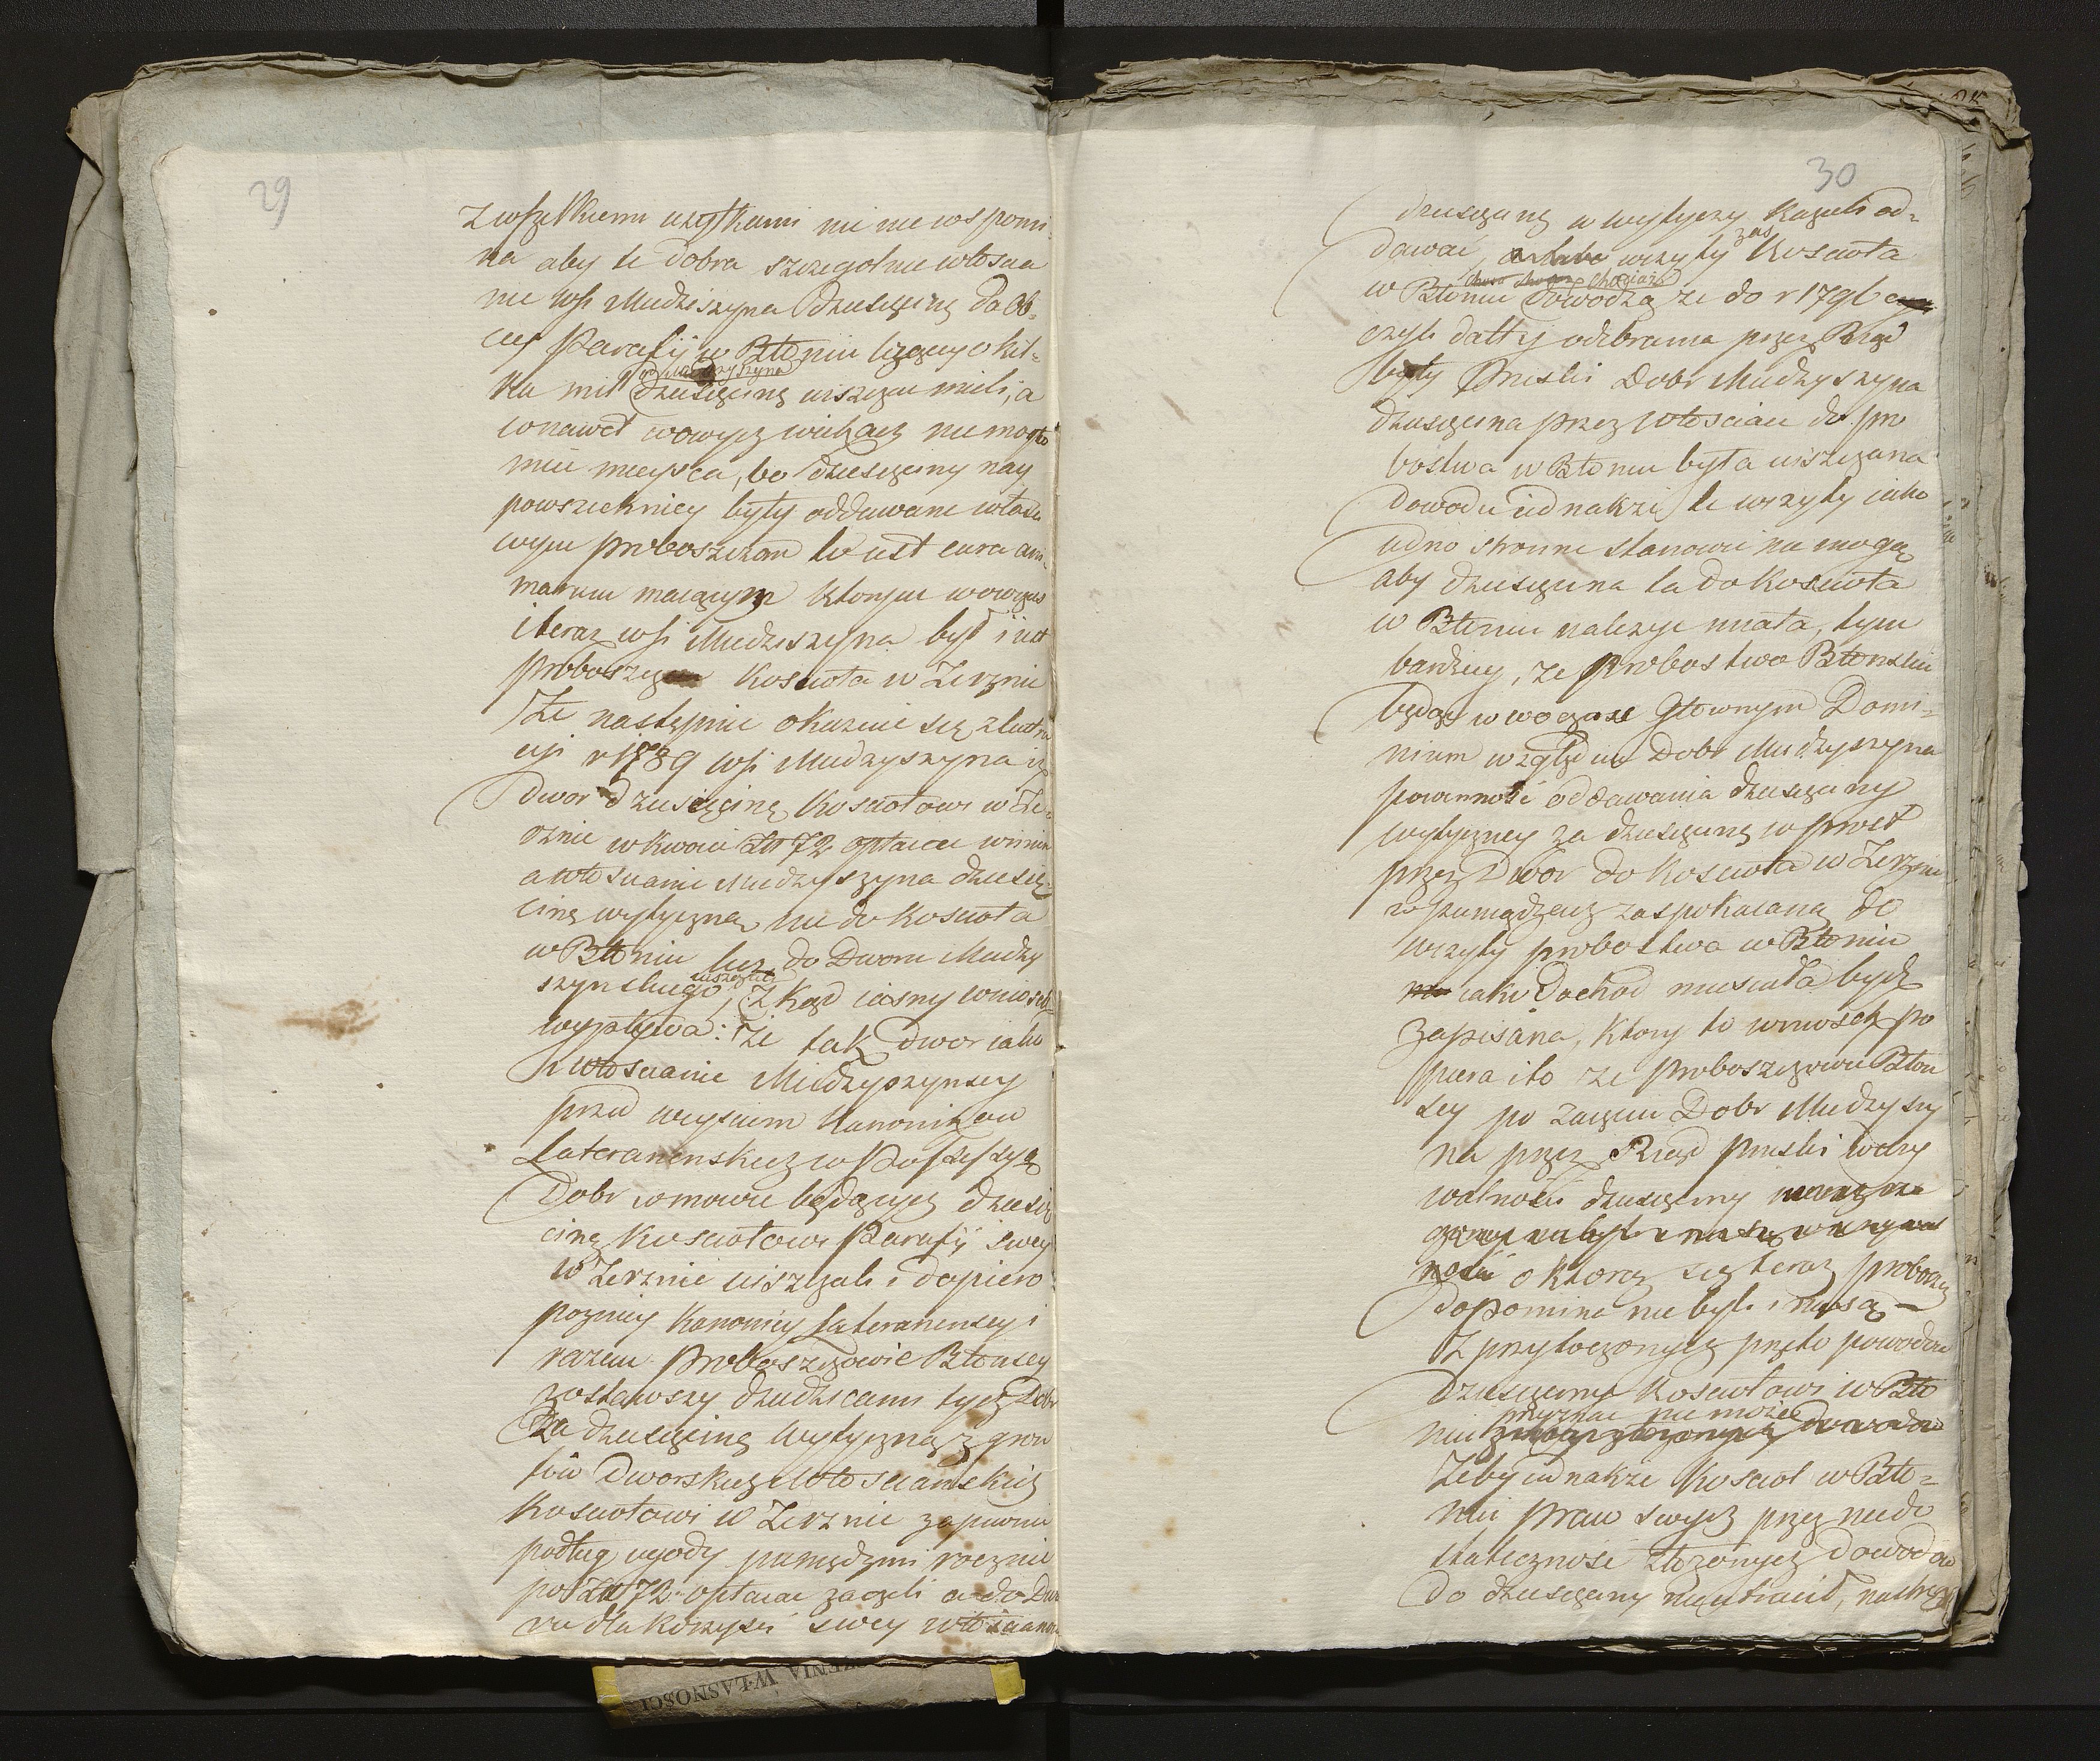 29
z wszelkiemi użytkami nie nie wspomi-
na aby te dobra szczegolnie włoscia
nie wsi Miedziszyna dziesięcinę do Ob-
cey Parafij w Błoniu liczącey o kil-
ka mil dziesięcinę uiszczać mieli, a
co nawet wowych wiekach nie mogło
mieć mieysca, bo dziesięciny nay
powszechniey były oddawane własci
wym proboszczom to iest cura ani-
marum maiącym ktorym wowczas
i teraz wsi Miedziszyna był i iest
Proboszcz Kościoła w Zerznie
Ze następnie okazuie się z lustra
cyi r 1789 wsi Miedzyszyna iż
Dwor dziesięcinę Kościołowi w Ze-
rznie w kwocie Zł 72 opłacać winien
a włoscianie Miedzyszyna dziesię-
cinę wytyczną nie do Kościoła
w Błoniu lecz do Dworu Miedzy
szynskiego uiszczali, Z kąd iasny wniosek
wypływa: że tak dwor iako
i włoscianie Miedzyszynscy
przed weyściem Kanonikow
Lateranenskich w Possessyą
Dobr w mowie będących dziesię
cinę Kościołowi Parafij swey
w Zerznie uiszczali i dopiero
pozniey Kanonicy Lateranenscy i
razem Proboszczowie Błonscy
zostawszy dziedzicami tych Dobr
Za dziesięcinę wytyczną z grun
tow Dworskich i włoscianskich
Kościołowi w Zerznie zapewne
podług ugody pieniędzmi rocznie
po Zł 72 opłacać zaczęli a do Dwo
ru dla korzyści swey włościanom
30
dziesięcinę w wytyczy kazali od-
dawać, wizyty zaś Kościoła
w Błoniu chociaż dowodzą ze do r 1796
czyli datty odebrania przez Rząd
były Pruski Dobr Miedzyszyna
dziesięcina przez włościan do pro
bostwa w Błoniu była uiszczana
dowodu iednakże te wizyty iako
iedno stronne stanowić nie mogą
aby dziesięcina ta do Kościoła
w Błoniu należyć miała, tym
bardziey, ze Probostwo Błonskie
będąc wowczas Głownym Domi-
nium względem Dobr Miedzyszyna
powinność oddawania dziesięciny
wytyczney za dziesięcinę w prost
przez Dwor do Kościoła w Zerznie
w pieniądzach zaspokaianą do
wizyty probostwa w Błoniu
iako Dochod musiała bydź
zapisana, Ktory to wniosek po
piera i to ze Proboszczowie Błon
scy po zaięciu Dobr Miedzyszy
na przez Rząd Pruski w czy
walności dziesięciny
o ktorą się teraz proboszcz
dopomina nie byli i nie są —
Z przytoczonych przeto powodow
Dziesięciny Kościołowi w Bło
niu przyznać nie może
Zeby iednakże Kościoł w Bło-
niu praw swych przez niedo
stateczność złożonych dowodow
do dziesięciny nieutracił,